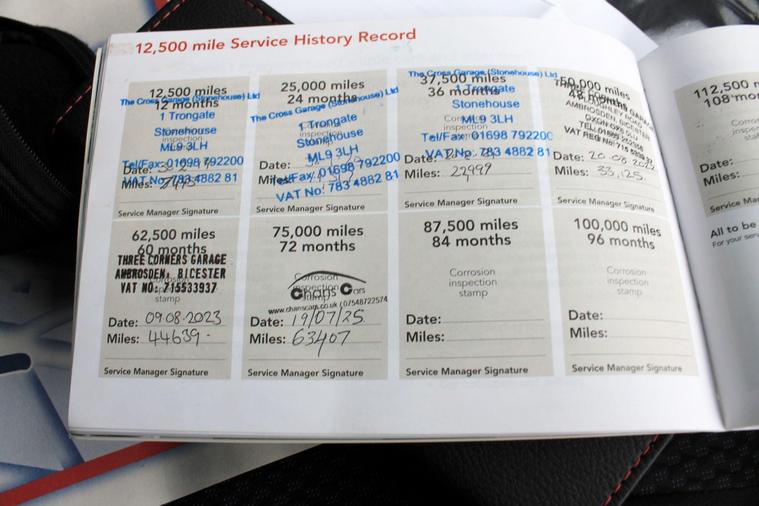 12,500 mile Service History Record
12,500 miles
12 months
The Cross Garage (Stonehouse) Ltd
1 Trongate
Stonehouse
ML9 3LH
Tel/Fax: 01698 792200
VAT No: 783 4882 81
Date:
Miles:
Service Manager Signature
25,000 miles
24 months
The Cross Garage (Stonehouse) Ltd
1 Trongate
Stonehouse
ML9 3LH
Tel/Fax: 01698 792200
VAT No: 783 4882 81
Date:
Miles:
Service Manager Signature
37,500 miles
36 months
The Cross Garage (Stonehouse) Ltd
1 Trongate
Stonehouse
ML9 3LH
Tel/Fax: 01698 792200
VAT No: 783 4882 81
Date:
Miles: 22999
Service Manager Signature
50,000 miles
48 months
Date: 20.08.2022
Miles: 33,125.
Service Manager Signature
62,500 miles
60 months
THREE CORNERS GARAGE
AMBROSDEN, BICESTER
VAT NO: 715533937
Date: 09.08.2023
Miles: 44639-
Service Manager Signature
75,000 miles
72 months
Corrosion
inspection
stamp
Chans Cars
www.chanscars.co.uk / 07548722574
Date: 19/07/25
Miles: 63407
Service Manager Signature
87,500 miles
84 months
Corrosion
inspection
stamp
Date:
Miles:
Service Manager Signature
100,000 miles
96 months
Corrosion
inspection
stamp
Date:
Miles:
Service Manager Signature
112,500 m
108 mo
Corros
inspec
stam
Date:
Miles:
Service Ma
All to be
For your serv